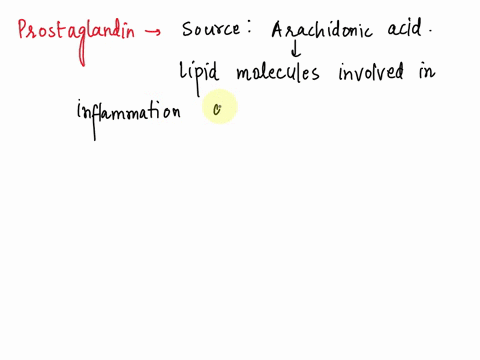 Prostaglandin → Source: Arachidonic acid.
↓
Lipid molecules involved in
inflammation